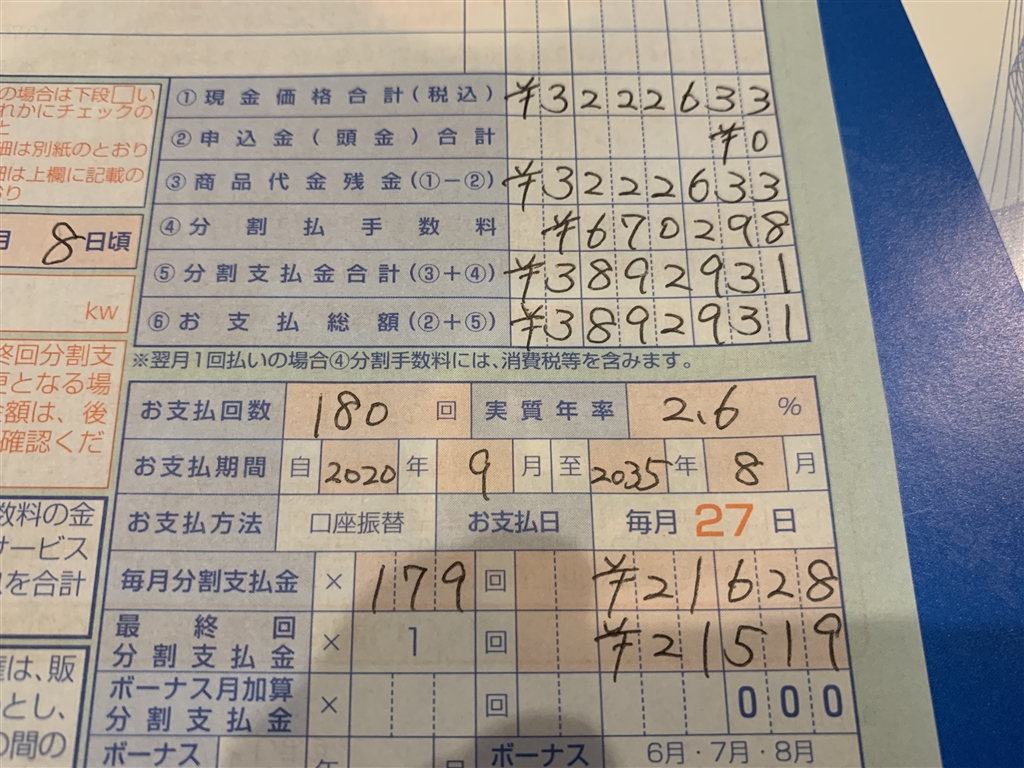 の場合は下段□い
れかにチェックの
と
細は別紙のとおり
細は上欄に記載の
おり
月 8 日頃
kw
終回分割支
更となる場
金額は、後
確認くだ
数料の金
サービス
を合計
権は、販
とし、
の間の
①現金価格合計(税込) ¥3222633
②申込金(頭金)合計 ¥0
③商品代金残金(①−②) ¥3222633
④分割払手数料 ¥670298
⑤分割支払金合計(③+④) ¥3892931
⑥お支払総額(②+⑤) ¥3892931
※翌月1回払いの場合④分割手数料には、消費税等を含みます。
お支払回数 180 回 実質年率 2.6 %
お支払期間 自 2020 年 9 月 至 2035 年 8 月
お支払方法 口座振替 お支払日 毎月 27 日
毎月分割支払金 × 179 回 ¥21628
最終回分割支払金 × 1 回 ¥21519
ボーナス月加算分割支払金 × 回 000
ボーナス 年 月 ボーナス 6月・7月・8月